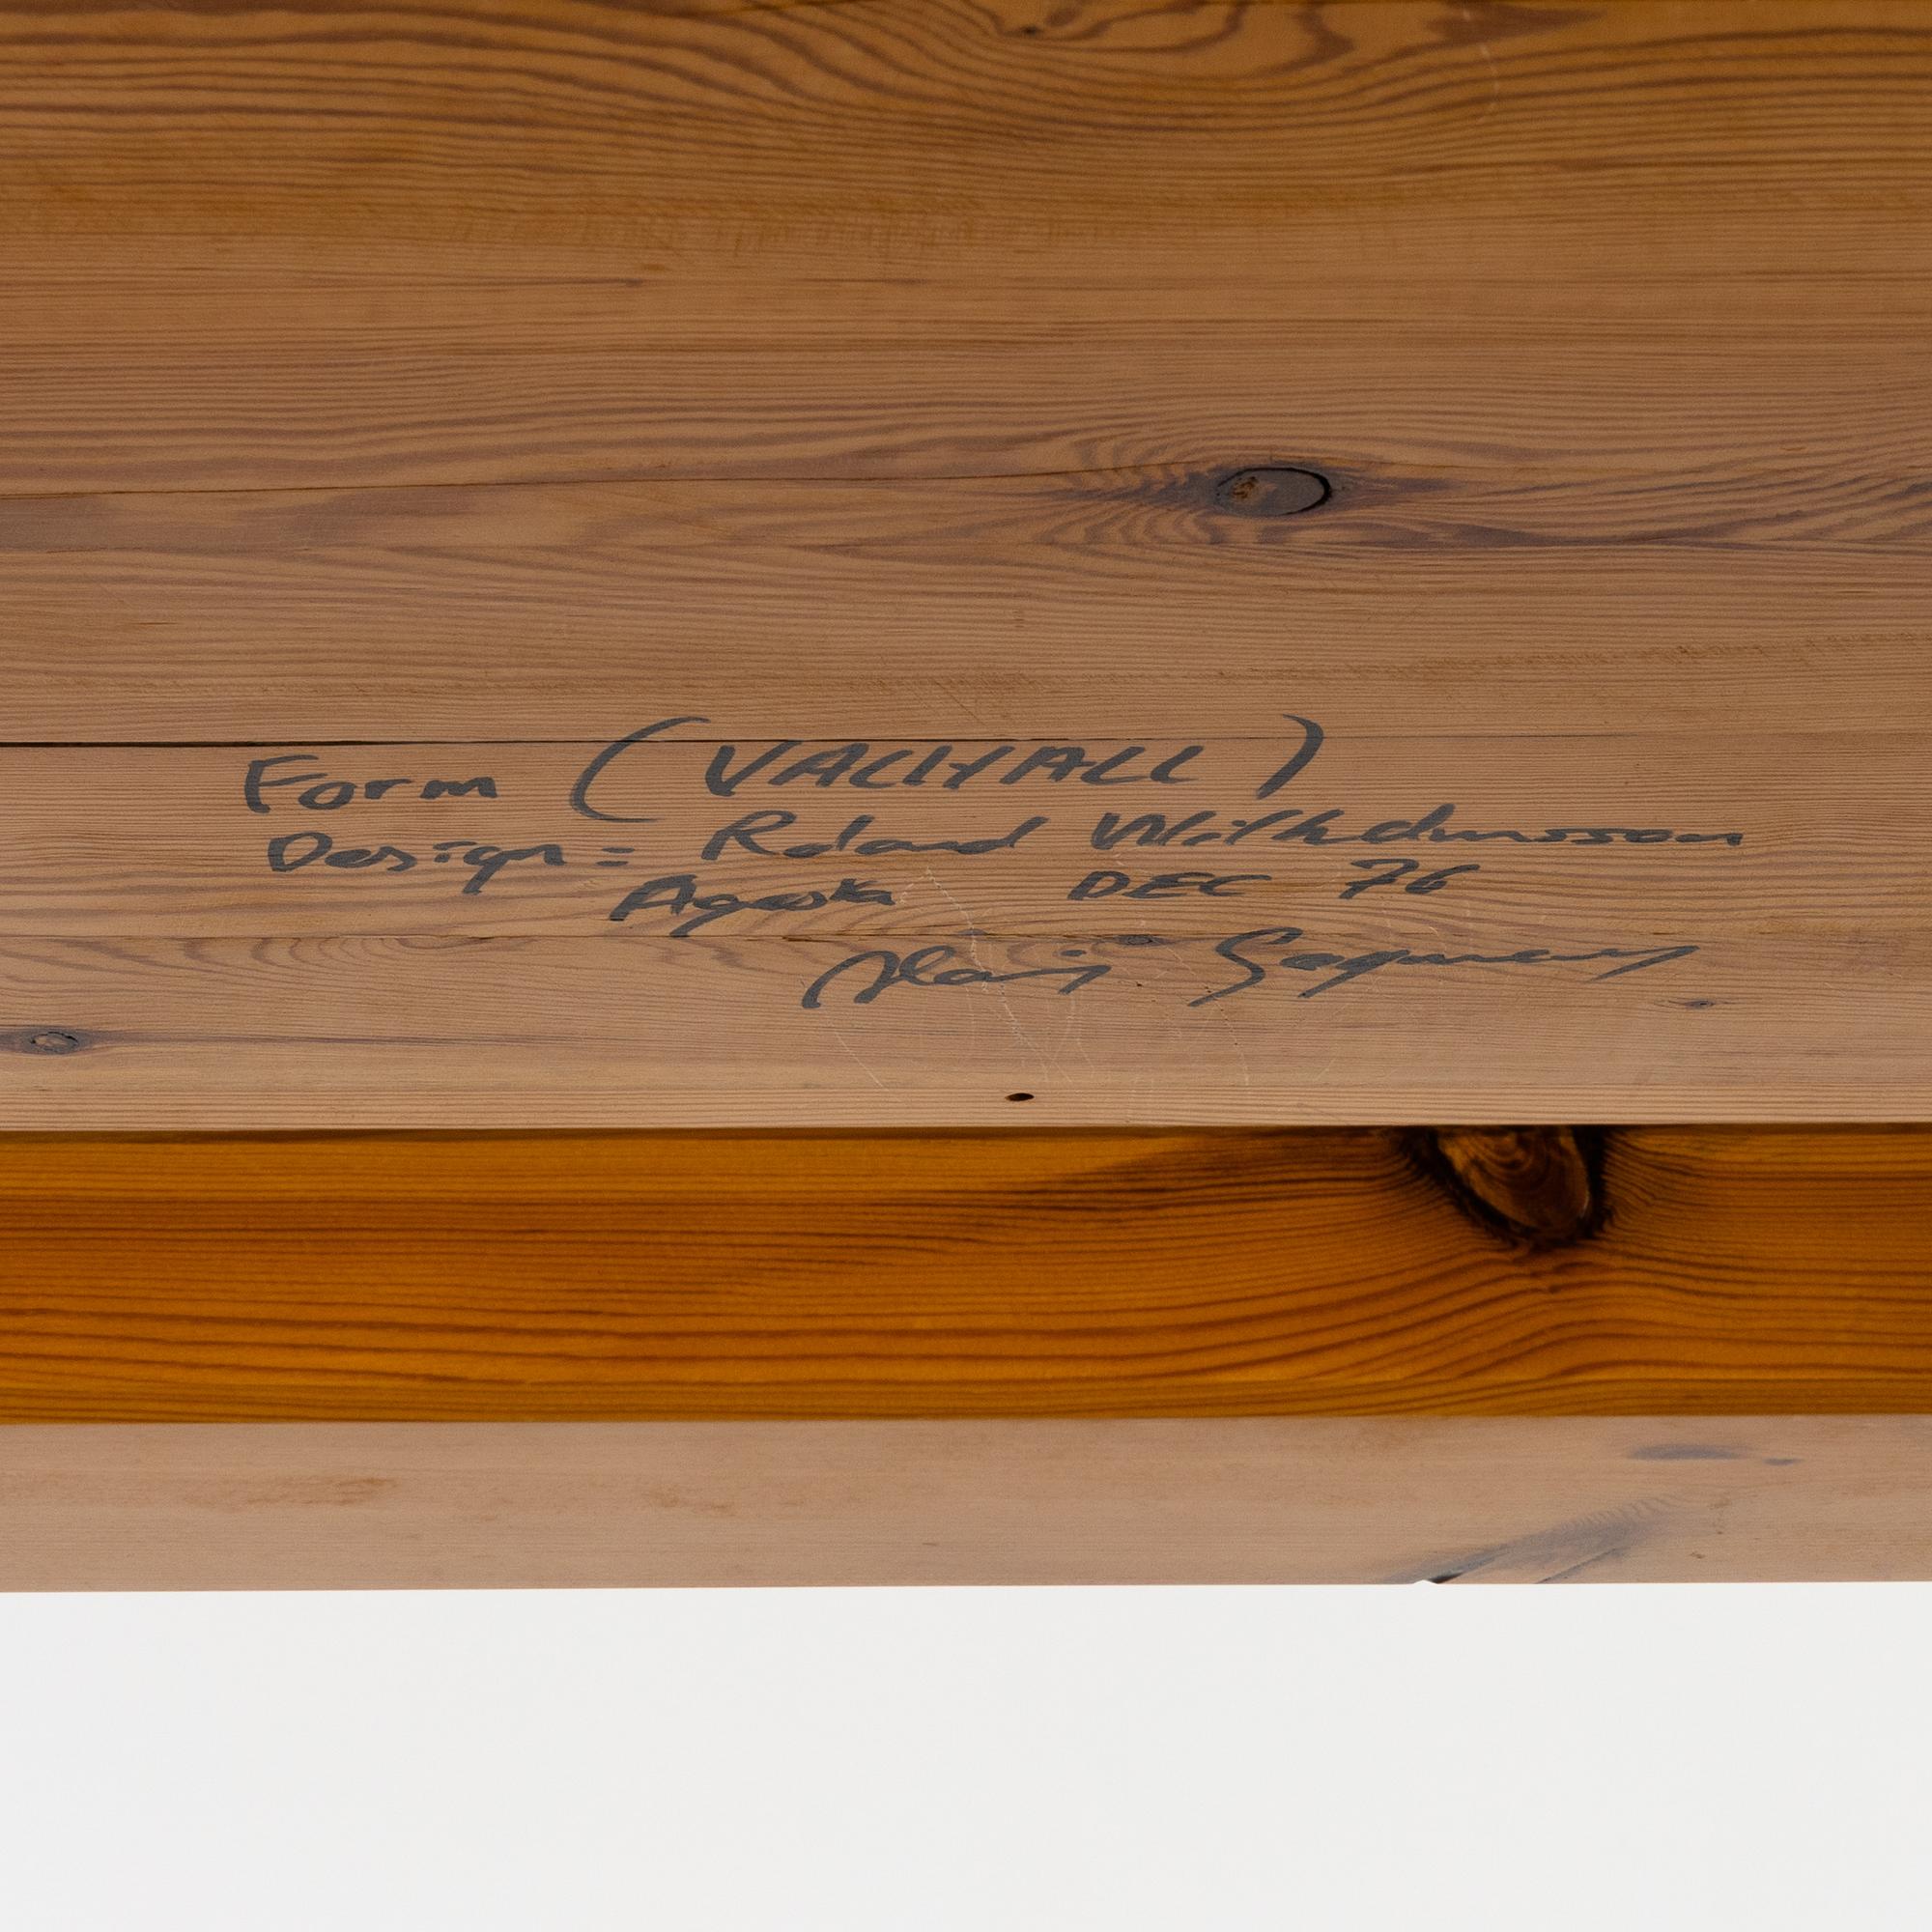 Form (VALHALL)
Design: Roland Wilhelmsson
Agesta DEC 76